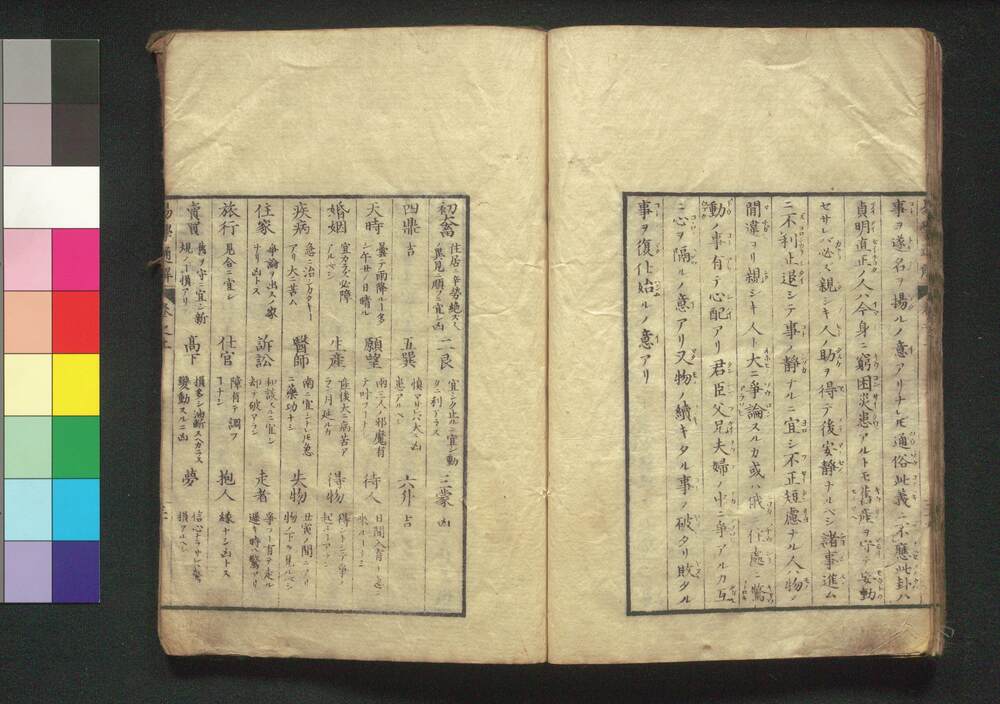 事ヲ遂名ヲ揚ルノ意アリナレ𪜈通俗此義ニ不應此卦ハ
貞明直正ノ人ハ今身ニ窮困災患アルトモ舊産ヲ守テ妄動
セサレバ必ズ親シキ人ノ助ヲ得テ後安静ナルベシ諸事進ム
ニ不利止退シテ事ノ静ナルニ宜シ不正短慮ナル人ハ物ノ
間違ヨリ親シキ人ト大ニ争論スルカ或ハ俄ニ住處ニ驚
動ノ事有テ心配アリ君臣父兄夫婦ノ中ニ争アルカ互
ニ心ヲ隔ルノ意アリ又物ノ續キタル事ノ破タリ敗タル
事ヲ復仕始ルノ意アリ
初畜 住居ニ辛勞絶ズ人ノ異見ニ順フニ宜シ凶 二艮 宜シク止ルニ宜シ動クニ利アラス 三蒙 凶
四鼎 吉 五巽 慎マザレバ大ニ凶患アルベシ 六升 吉
天時 曇テ雨降ル丁多シ午廿日晴ル 願望 南ニ人ノ邪魔有テ叶ハ 待人 日間入有
婚姻 宜カラズ必障アルベシ 生産 前後大ニ病苦アラン月延ルカ 得物 得
疾病 急ニ治シカタキアリ大ニ苦ム 醫師 南ニ宜シトレ𪜈急ニ藥功ナシ 失物 丑寅ノ間ニアリ物ノ下ヲ見ルベシ
住家 争論ヲ出スノ家ナリ凶トス 訴訟 和談スルニ宜シ却テ破アラン 走者 遅キ時ハ驚アリ
旅行 見合ニ宜シ 仕官 障有テ調フ丁ナシ 抱人 縁ナシ凶トス
賣買 舊ヲ守ニ宜シ新規ノ丁損アリ 高下 損多シ油断スベカラズ變動スルニ凶 夢 信心ナラザレバ驚損アルベシ